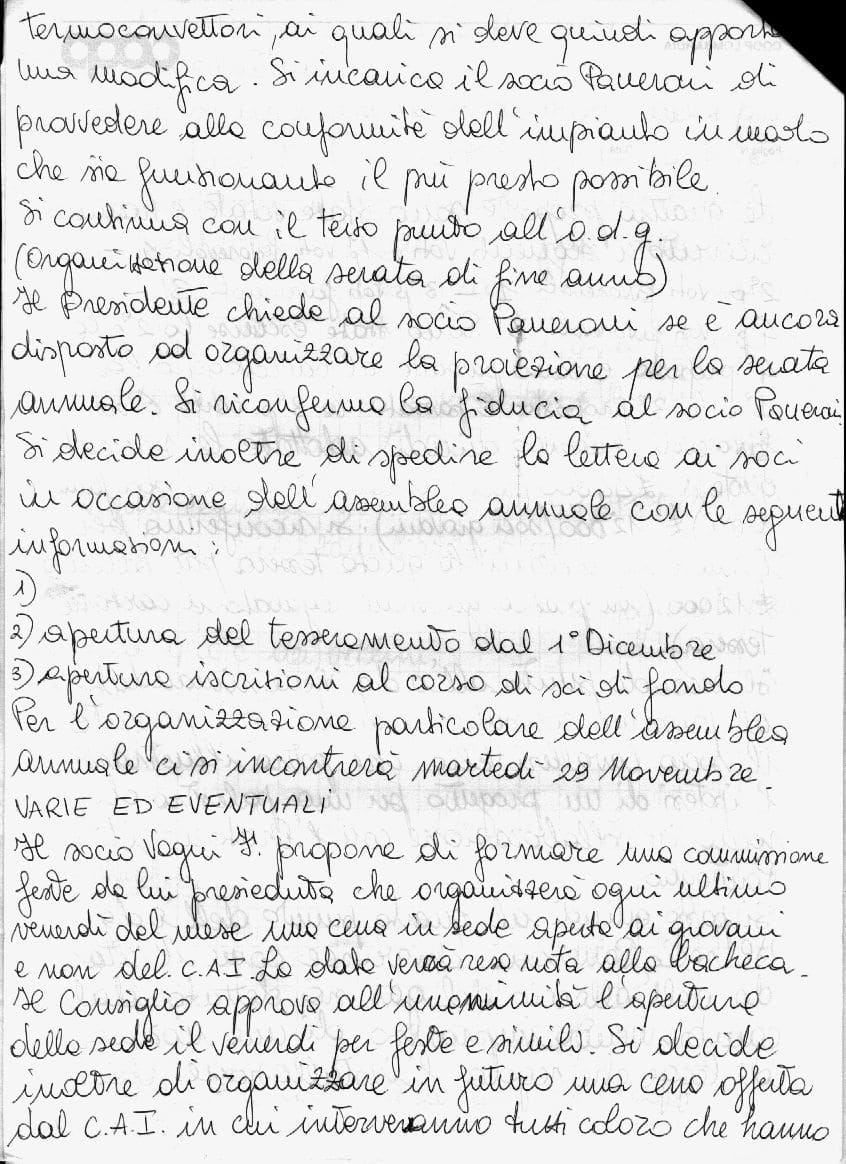 termoconvettori, ai quali si deve quindi apporta
una modifica. Si incarica il socio Paneroni di
provvedere alla conformità dell'impianto in modo
che sia funzionante il più presto possibile.
Si continua con il terzo punto all'o.d.g.
(Organizzazione della serata di fine anno)
Il Presidente chiede al socio Paneroni se è ancora
disposto ad organizzare la proiezione per la serata
annuale. Si riconferma la fiducia al socio
Si decide inoltre di spedire la lettera ai soci
in occasione dell'assemblea annuale con le seguenti
informazioni:
1)
2) apertura del tesseramento dal 1° Dicembre
3) apertura iscrizioni al corso di sci di fondo
Per l'organizzazione particolare dell'assemblea
annuale ci si incontrerà martedì 29 Novembre.
VARIE ED EVENTUALI
Il socio propone di formare una commissione
feste da lui presieduta che organizzerà ogni ultimo
venerdì del mese una cena in sede aperta ai giovani
e non del C.A.I. La data verrà resa nota alla bacheca.
Il Consiglio approva all'unanimità l'apertura
della sede il venerdì per feste e simili. Si decide
inoltre di organizzare in futuro una cena offerta
dal C.A.I. in cui interverranno tutti coloro che hanno